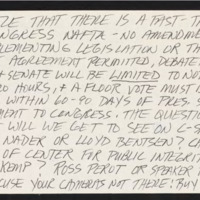 ZE THAT THERE IS A FAST-T
NGRESS NAFTA - NO AMENDME
LEMENTING LEGISLATION OR TH
AGREEMENT PERMITTED, DEBATE
+ SENATE WILL BE LIMITED TO NO
20 HOURS, + A FLOOR VOTE MUST
WITHIN 60-90 DAYS OF PRES. S
MENT TO CONGRESS. THE QUESTION
WILL WE GET TO SEE ON C-S
NADER OR LLOYD BENTSEN? C
OF CENTER FOR PUBLIC INTEGRI
KEMP? ROSS PEROT OR SPEAKER
CUSE YOUR CAMERAS NOT THERE! BUY